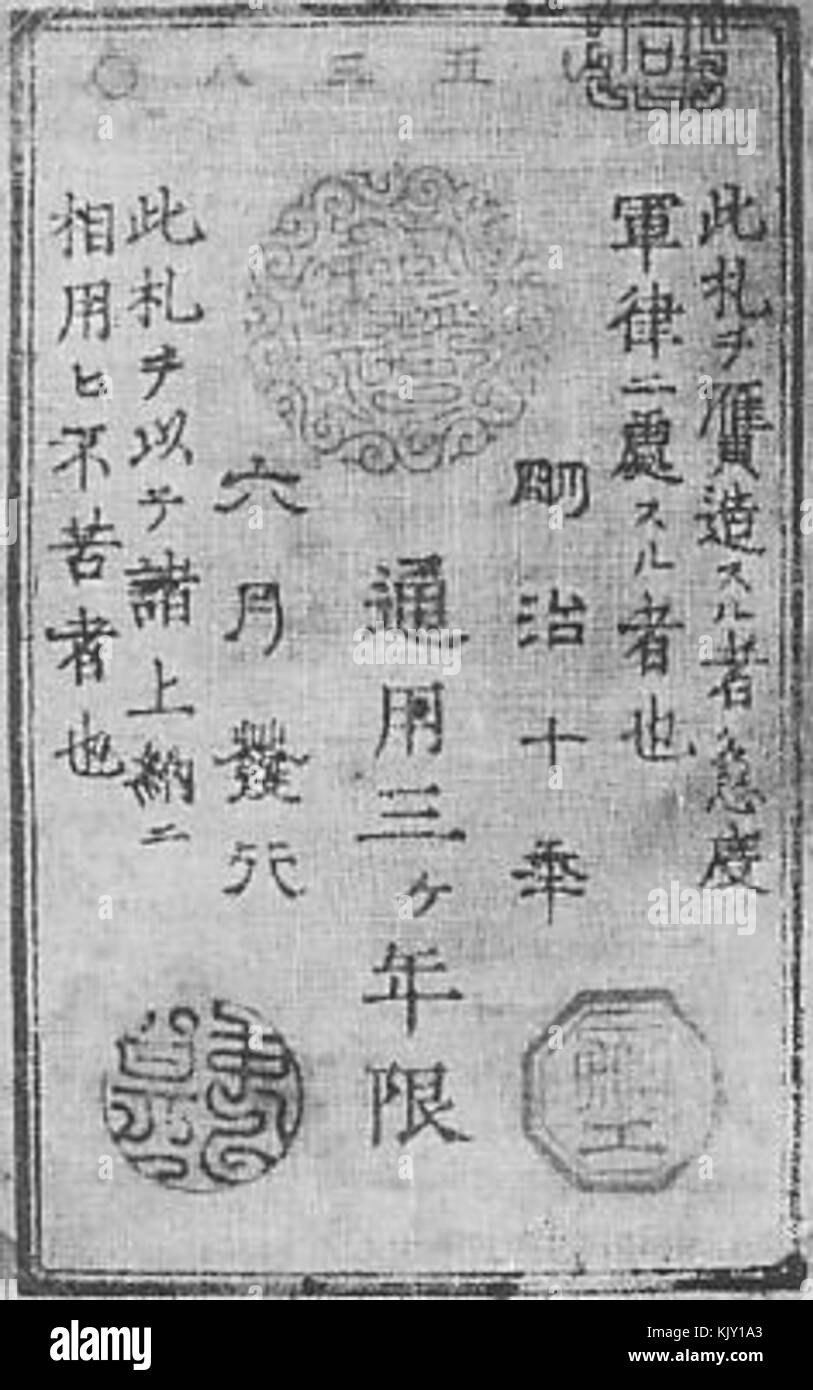 五三八〇
此札ヲ贋造スル者ハ急度
軍律ニ處スル者也
朙治十秊
通用三ケ年限
六月發行
此札ヲ以テ諸上納ニ
相用ヒ不苦者也
alamy
Image ID: KJY1A3
www.alamy.com